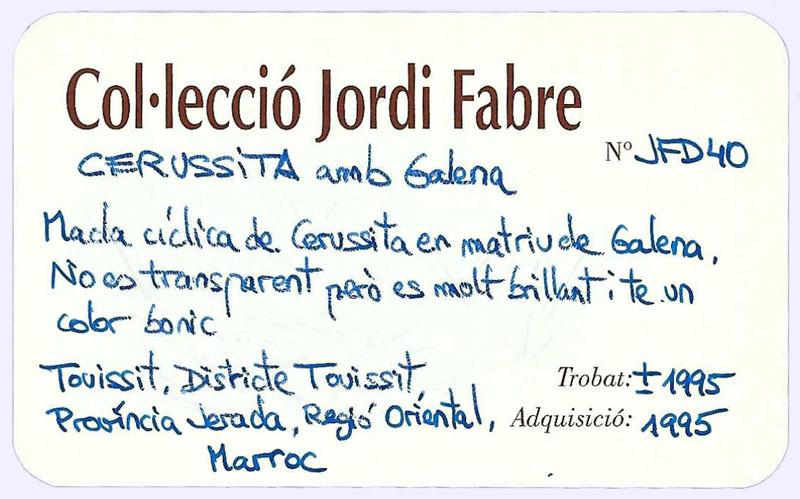 Col·lecció Jordi Fabre
Nº JFD40
CERUSSITA amb Galena
Macla cíclica de Cerussita en matriu de Galena.
No es transparent però es molt brillant i te un
color bonic
Touissit, Districte Touissit,
Trobat: ± 1995
Província Jerada, Regió Oriental,
Adquisició: 1995
Marroc